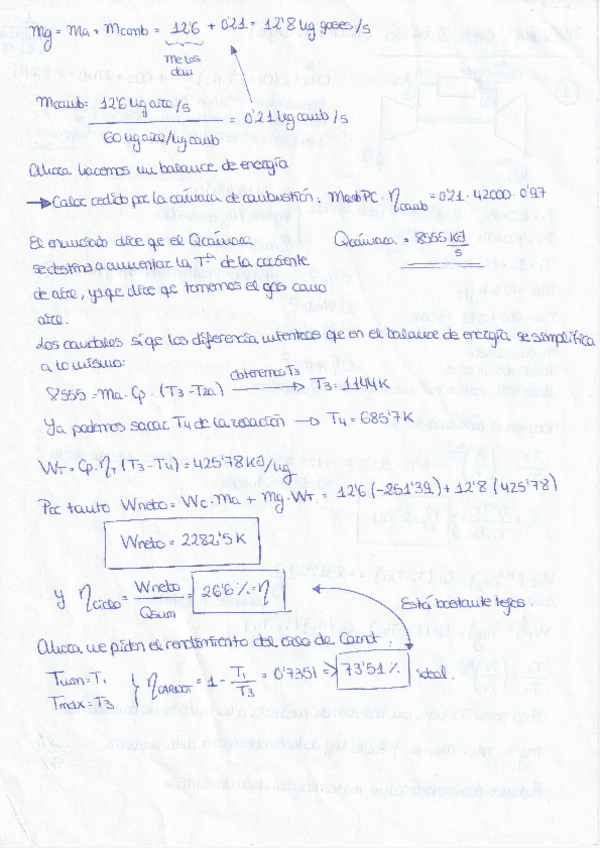 mg = ma + mcomb = 12'6 + 0'21 = 12'8 kg gases/s
me los dan
mcomb = 12'6 kg aire/s / 60 kg aire/kg comb = 0'21 kg comb/s
Ahora hacemos un balance de energía
→ Calor cedido por la cámara de combustión: mcomb PC · ηcomb = 0'21 · 42000 · 0'97
El enunciado dice qe el Qcámara Qcámara = 8555 kJ/s
se destina a aumentar la Tª de la corriente
de aire, ya qe dice qe tomemos el gas como
aire.
Los caudales si qe los diferencia mientras que en el balance de energía se simplifica
a lo mismo:
8555 = ma · Cp · (T3 - T2a) obtenemos T3 → T3 = 1144 K
Ya podemos sacar T4 de la relación → T4 = 685'7 K
WT = Cp · ηT (T3 - T4) = 425'78 KJ/kg
Por tanto Wneto = Wc · ma + mg · WT = 12'6 (-251'39) + 12'8 (425'78)
Wneto = 2282'5 K
y ηciclo = Wneto / Qsum = 26'6 % = η
Está bastante lejos.
Ahora me piden el rendimiento del ciclo de Carnot.
Tmin = T1 ηCARNOT = 1 - T1/T3 = 0'7351 ⇒ 73'51 % ideal.
Tmax = T3